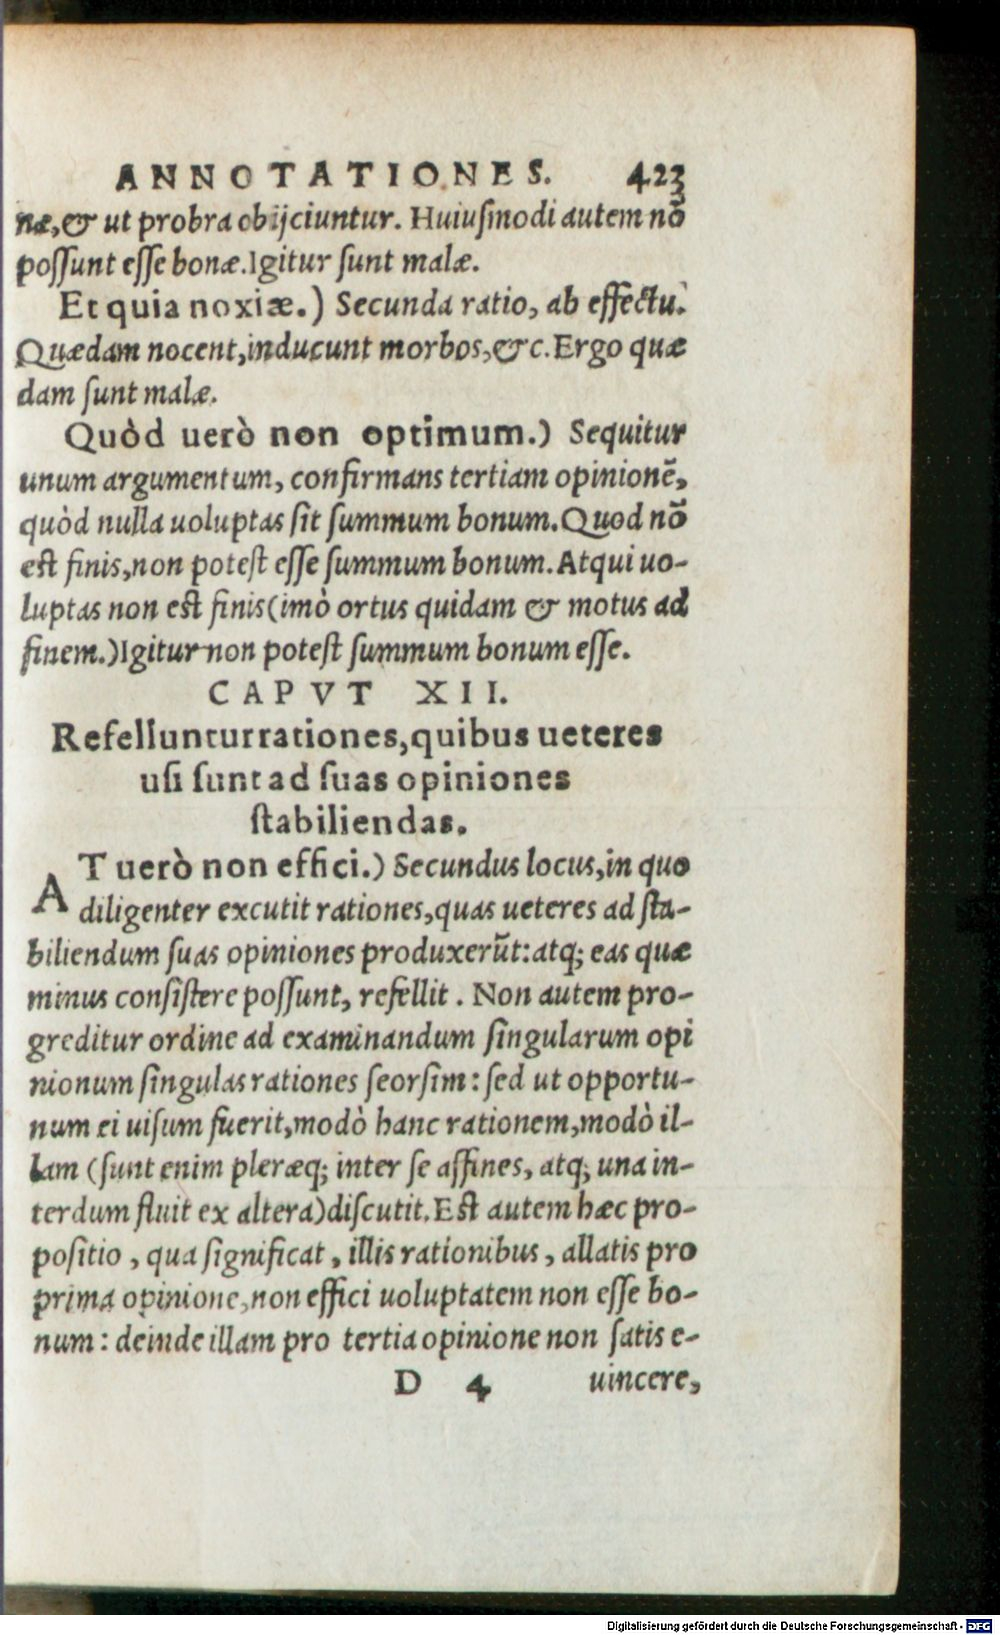 ANNOTATIONES. 423
næ, & ut probra obijciuntur. Huiuſmodi autem nō
poſſunt eſſe bonæ. Igitur ſunt malæ.
Et quia noxiæ.) Secunda ratio, ab effectu.
Quædam nocent, inducunt morbos, &c. Ergo quæ
dam ſunt malæ.
Quòd uerò non optimum.) Sequitur
unum argumentum, confirmans tertiam opinionē,
quòd nulla uoluptas ſit ſummum bonum. Quod nō
eſt finis, non poteſt eſſe ſummum bonum. Atqui uo-
luptas non eſt finis (imò ortus quidam & motus ad
finem.) Igitur non poteſt ſummum bonum eſſe.
CAPVT XII.
Refelluntur rationes, quibus ueteres
uſi ſunt ad ſuas opiniones
ſtabiliendas.
AT uerò non effici.) Secundus locus, in quo
diligenter excutit rationes, quas ueteres ad ſta-
biliendum ſuas opiniones produxerūt: atq; eas quæ
minus conſiſtere poſſunt, refellit. Non autem pro-
greditur ordine ad examinandum ſingularum opi
nionum ſingulas rationes ſeorſim: ſed ut opportu-
num ei uiſum fuerit, modò hanc rationem, modò il-
lam (ſunt enim pleræq; inter ſe affines, atq; una in-
terdum fluit ex altera) diſcutit. Eſt autem hæc pro-
poſitio, qua ſignificat, illis rationibus, allatis pro
prima opinione, non effici uoluptatem non eſſe bo-
num: deinde illam pro tertia opinione non ſatis e-
D 4 uincere,
Digitalisierung gefördert durch die Deutsche Forschungsgemeinschaft - DFG